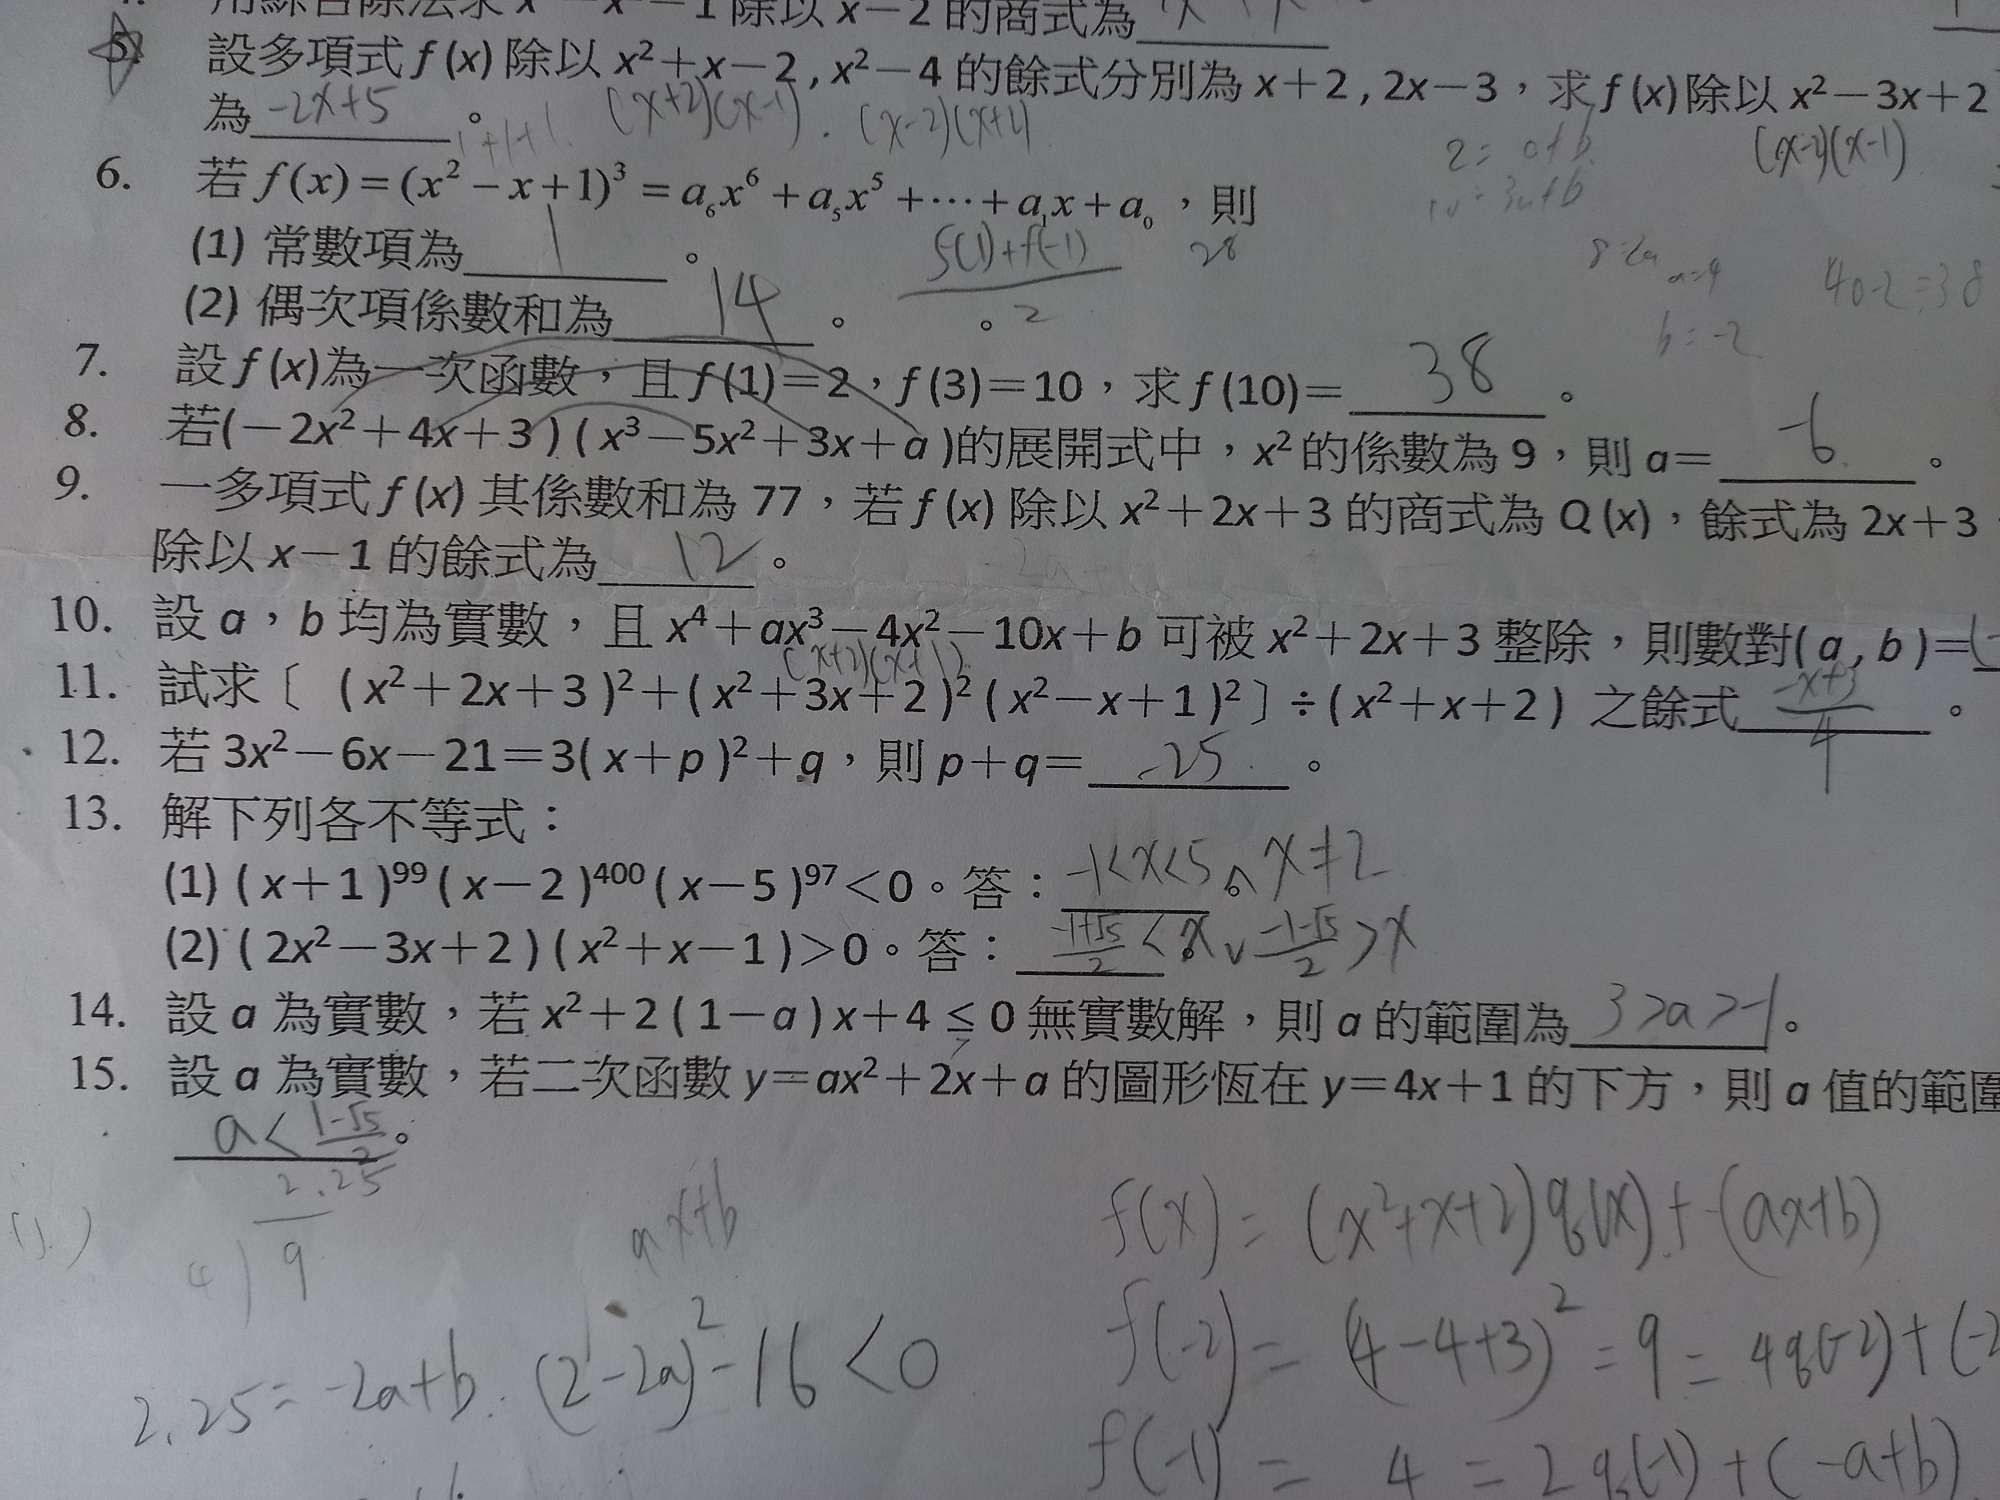 用綜合除法求 x
除以 x－2 的商式為
5. 設多項式 f (x) 除以 x²＋x－2 , x²－4 的餘式分別為 x＋2 , 2x－3，求 f (x)除以 x²－3x＋2
為 -2x+5 。 (x+2)(x-1) . (x-2)(x+2)
2 = a+b (x-2)(x-1)
6. 若 f(x) = (x² − x + 1)³ = a₆x⁶ + a₅x⁵ + ⋯ + a₁x + a₀，則
(1) 常數項為 1 。 f(1)+f(-1) 28
8=2a a=4 40-2=38
(2) 偶次項係數和為 14 。 。 2
b=-2
7. 設 f (x)為一次函數，且 f (1)＝2，f (3)＝10，求 f (10)＝ 38 。
8. 若(－2x²＋4x＋3 ) ( x³－5x²＋3x＋a )的展開式中，x² 的係數為 9，則 a＝ -6 。
9. 一多項式 f (x) 其係數和為 77，若 f (x) 除以 x²＋2x＋3 的商式為 Q (x)，餘式為 2x＋3
除以 x－1 的餘式為 12 。
10. 設 a，b 均為實數，且 x⁴＋ax³－4x²－10x＋b 可被 x²＋2x＋3 整除，則數對( a , b )＝
(x+2)(x+1)
11. 試求〔 ( x²＋2x＋3 )²＋( x²＋3x＋2 )² ( x²－x＋1 )²〕÷ ( x²＋x＋2 ) 之餘式 -x+3 。
4
12. 若 3x²－6x－21＝3( x＋p )²＋q，則 p＋q＝ -25 。
13. 解下列各不等式：
(1) ( x＋1 )⁹⁹ ( x－2 )⁴⁰⁰ ( x－5 )⁹⁷＜0。答： -1<x<5 。∧ x≠2
(2) ( 2x²－3x＋2 ) ( x²＋x－1 )＞0。答： (-1+√5)/2 < x ∨ (-1-√5)/2 > x
14. 設 a 為實數，若 x²＋2 ( 1－a ) x＋4 ≦ 0 無實數解，則 a 的範圍為 3>a>-1 。
15. 設 a 為實數，若二次函數 y＝ax²＋2x＋a 的圖形恆在 y＝4x＋1 的下方，則 a 值的範圍
a < (1-√5)/2 。
2.25
4)9
ax+b
f(x) = (x²+x+2)q(x)+(ax+b)
f(-2) = (4-4+3)² = 9 = 4q(-2)+(-2
2.25 = -2a+b. (2-2a)²-16<0
f(-1) = 4 = 2q(-1)+(-a+b)